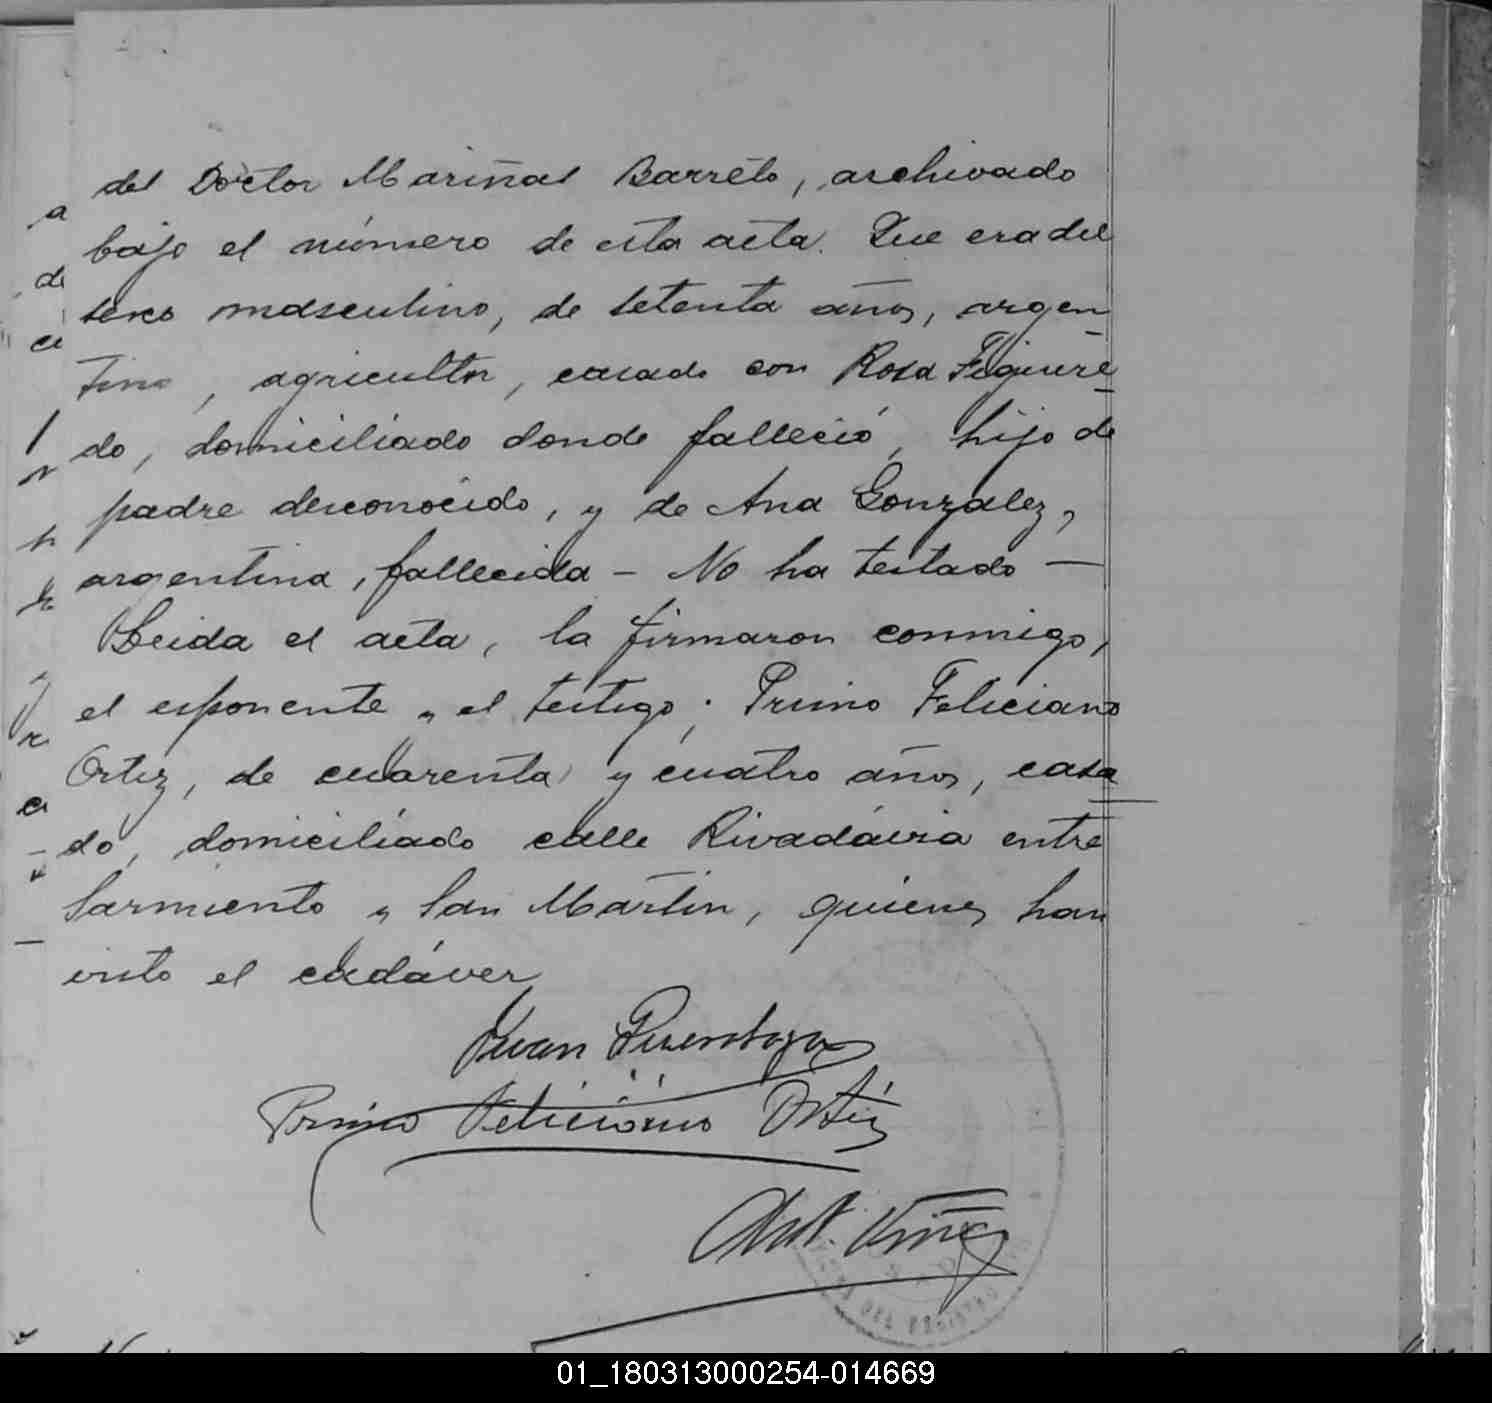 del Doctor Mariñas Barreto, archivado
bajo el número de esta acta. Que era del
sexo masculino, de setenta años, argen
tino, agricultor, casado con Rosa Figuere
do, domiciliado donde falleció, hijo de
padre desconocido, y de Ana Gonzalez,
argentina, fallecida - No ha testado -
Leida el acta, la firmaron conmigo,
el esponente y el testigo: Primo Feliciano
Ortiz, de cuarenta y cuatro años, casa
do, domiciliado calle Rivadavia entre
Sarmiento y San Martin, quienes han
visto el cadáver
Juan
Primo Feliciano Ortiz
01_180313000254-014669